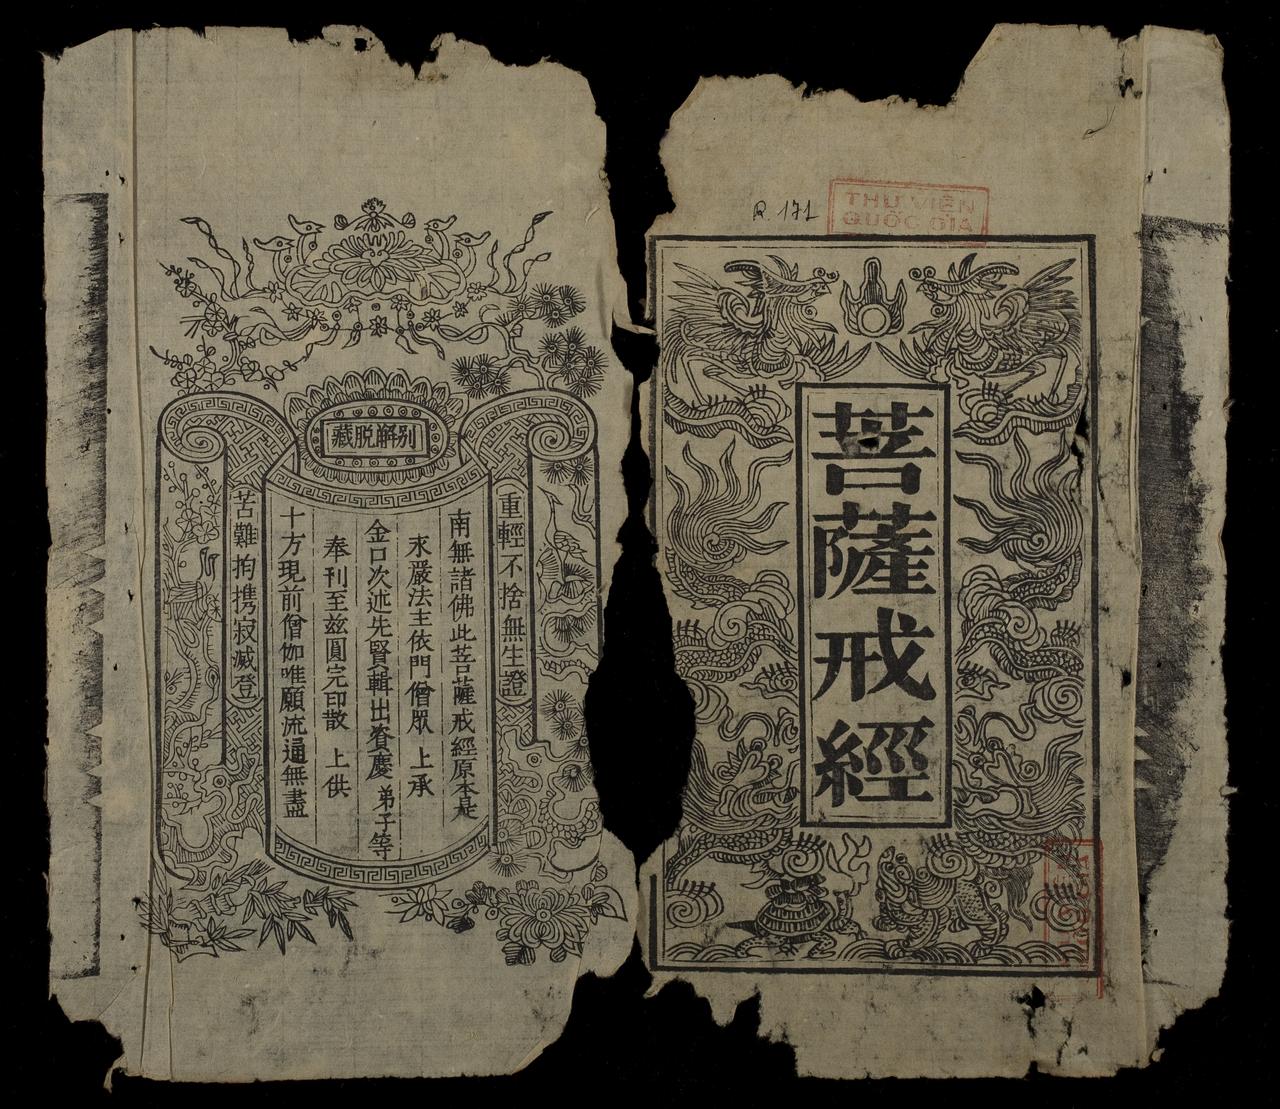 R.171
THƯ VIỆN
QUỐC GIA
菩薩戒經
別解脫藏
重輕不捨無生證
南無諸佛此菩薩戒經原本是
末嚴法主依門僧眾 上承
金口次述先賢輯出賚慶 弟子等
奉刊至茲圓完印散 上供
十方現前僧伽唯願流通無盡
苦難拘携寂滅登